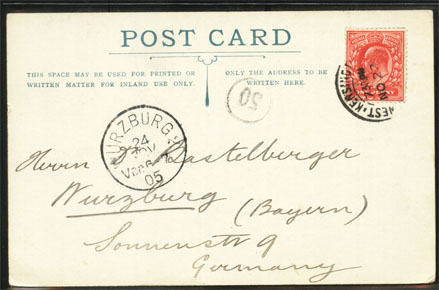 POST CARD
THIS SPACE MAY BE USED FOR PRINTED OR
WRITTEN MATTER FOR INLAND USE ONLY.
ONLY THE ADDRESS TO BE
WRITTEN HERE.
50
WURZBURG
24
NOV
05
Herrn Kastelberger
Wurzburg (Bayern)
Sonnenstr 9
Germany